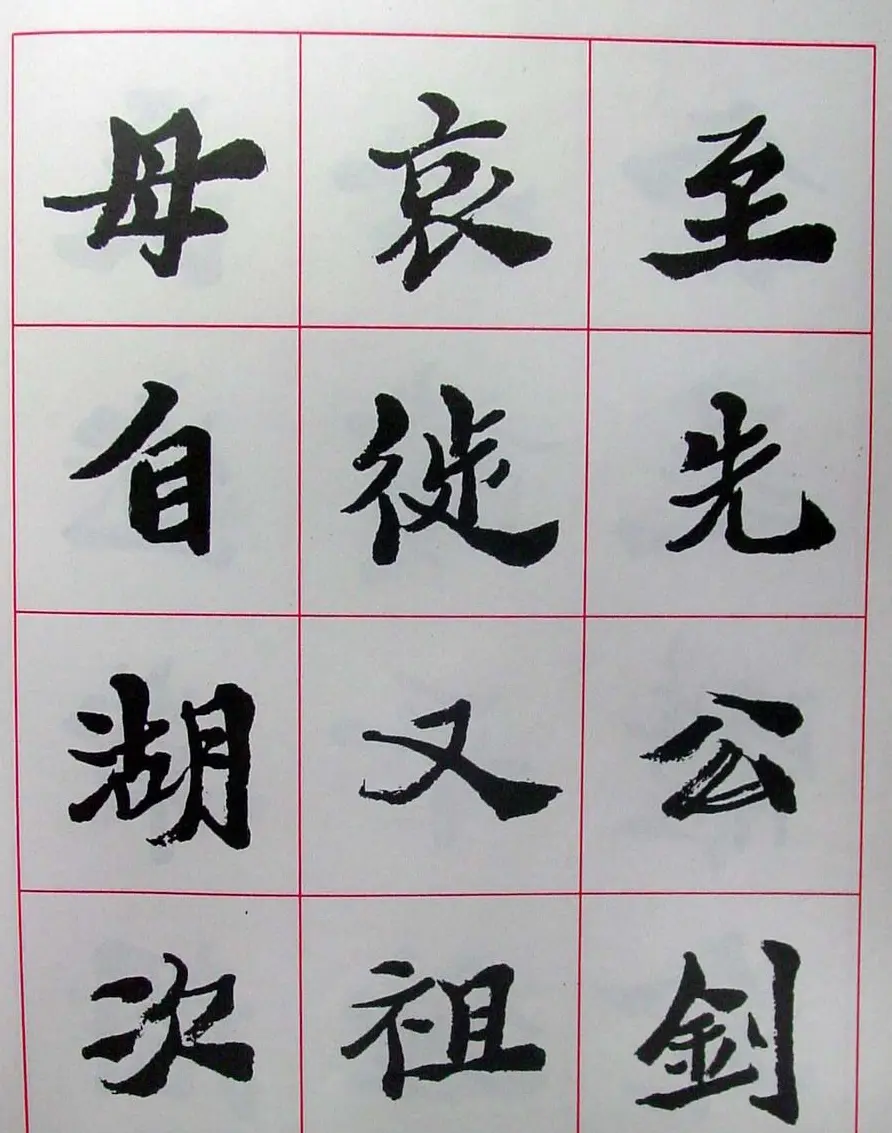 至先公釗
哀徙又祖
母自湖次